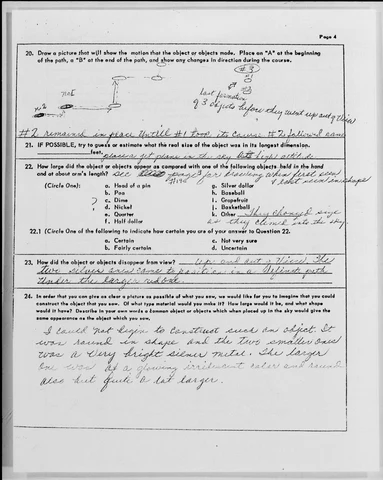 Page 4
20. Draw a picture that will show the motion that the object or objects made. Place an "A" at the beginning
of the path, a "B" at the end of the path, and show any changes in direction during the course.
#3
last formation
of 3 objects before they went up and out of View
#2 remained in place untill #1 took its course #2 followed same
21. IF POSSIBLE, try to guess or estimate what the real size of the object was in its longest dimension.
feet.
22. How large did the object or objects appear as compared with one of the following objects held in the hand
and at about arm's length?
(Circle One):
a. Head of a pin
b. Pea
c. Dime
d. Nickel
e. Quarter
f. Half dollar
g. Silver dollar
h. Baseball
i. Grapefruit
j. Basketball
k. Other They changed size
as they climed into the sky.
22.1 (Circle One of the following to indicate how certain you are of your answer to Question 22.
a. Certain
b. Fairly certain
c. Not very sure
d. Uncertain
23. How did the object or objects disappear from view? Up and out of View. The
two silver ones came to position in a
under the larger red one.
24. In order that you can give as clear a picture as possible of what you saw, we would like for you to imagine that you could
construct the object that you saw. Of what type material would you make it? How large would it be, and what shape
would it have? Describe in your own words a common object or objects which when placed up in the sky would give the
same appearance as the object which you saw.
I could not begin to construct such an object. It
was round in shape and the two smaller ones
was a very bright silver metal. The larger
one was of a glowing irridescent color and round
also but quite a lot larger.